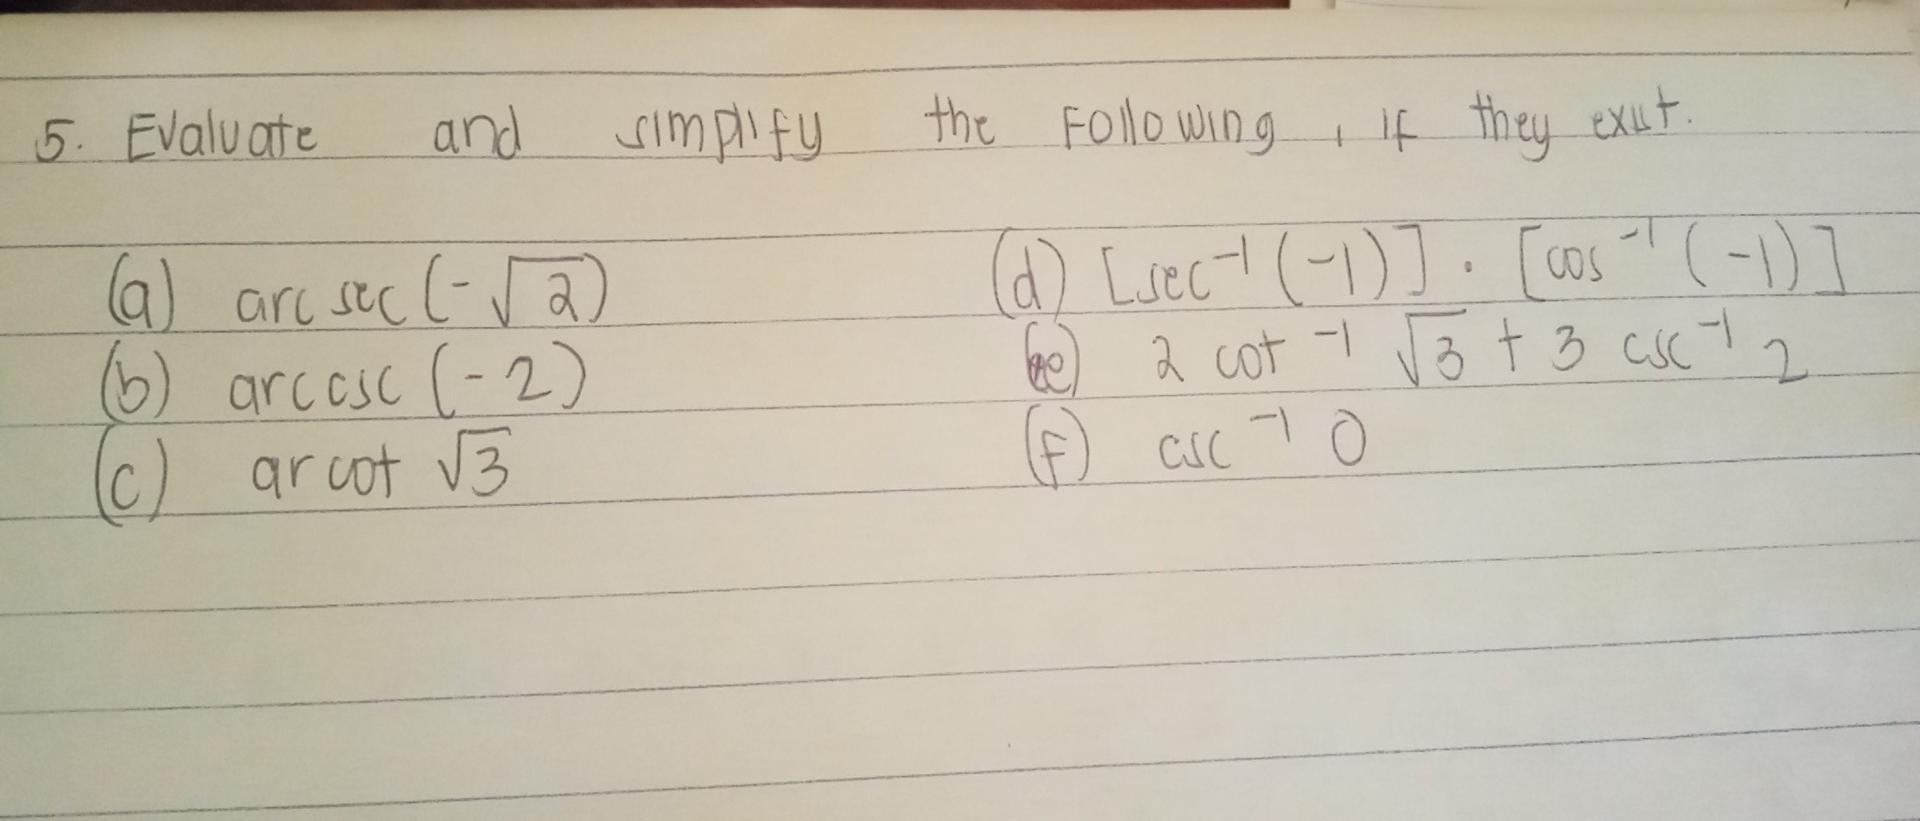 5. Evaluate and simplify the following, if they exist.
(a) arcsec(-√2)
(b) arccsc (-2)
(c) arcot √3
(d) [sec⁻¹(-1)] · [cos⁻¹(-1)]
(e) 2 cot⁻¹ √3 + 3 csc⁻¹ 2
(f) csc⁻¹ 0